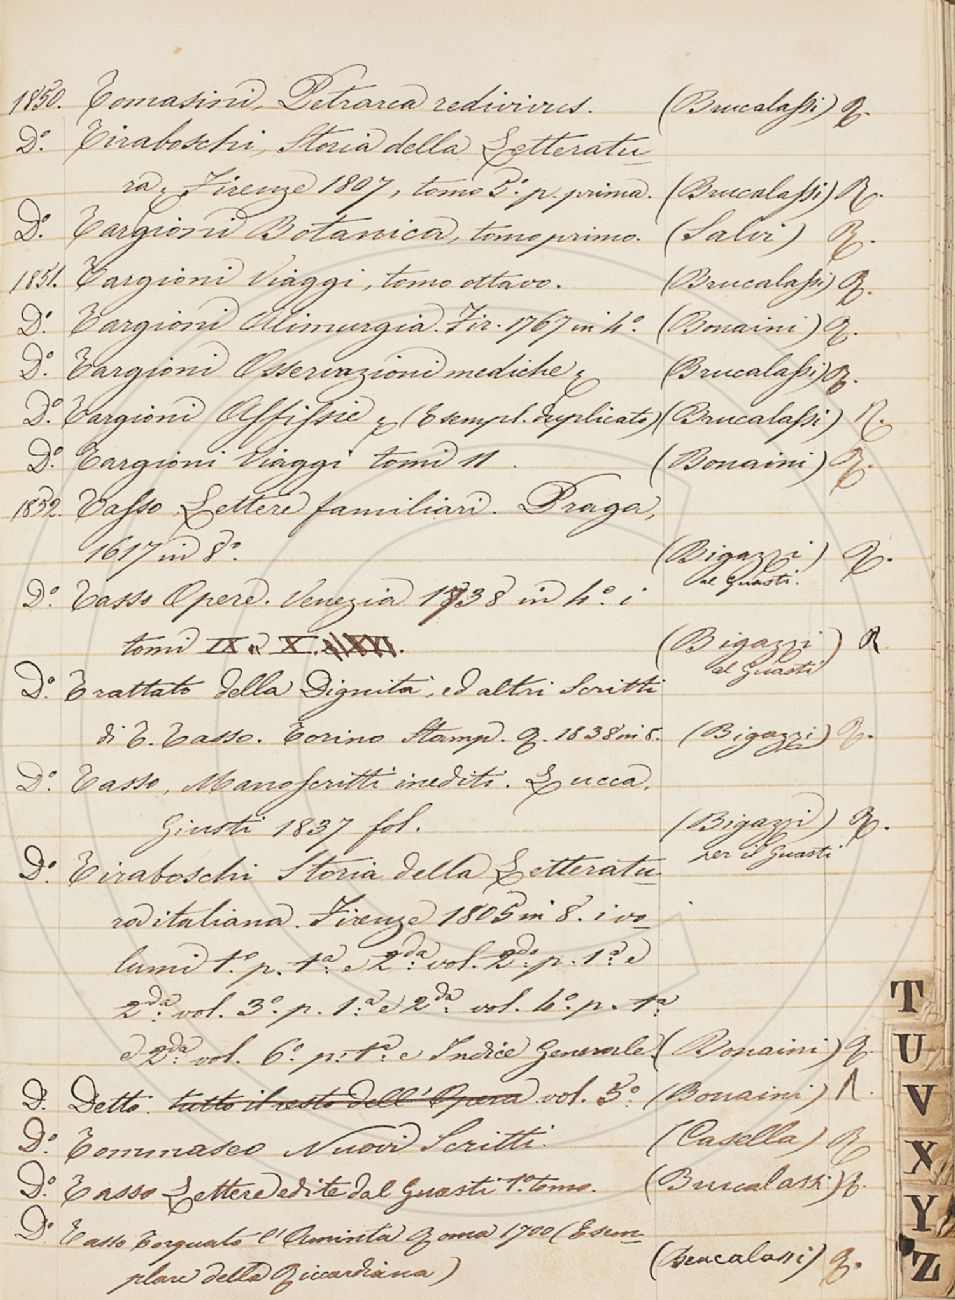 1850. Tomasini, Petrarca redivivus. (Brucalassi) R.
Do. Tiraboschi, Storia della Letteratu
ra, Firenze 1807, tomo 5o. p. prima. (Brucalassi) R.
Do. Targioni Botanica, tomo primo. (Salvi) R.
1851. Targioni Viaggi, tomo ottavo. (Brucalassi) R.
Do. Targioni Alimurgia. Fir. 1767 in 4o. (Bonaini) R.
Do. Targioni Osservazioni mediche (Brucalassi) R.
Do. Targioni (Esempl. duplicato) (Brucalassi) R.
Do. Targioni Viaggi tomi 11. (Bonaini) R.
1852. Tasso Lettere familiari. Praga,
1617 in 8o. (Bigazzi) R.
al Guasti.
Do. Tasso Opere. Venezia 1738 in 4o. i
tomi IX e X. (Bigazzi) R
al Guasti
Do. Trattato della Dignità, ed altri Scritti
di T. Tasso. Torino Stamp. R. 1838 in 8. (Bigazzi) R.
Do. Tasso, Manoscritti inediti. Lucca,
Giusti 1837 fol. (Bigazzi) R.
per il Guasti
Do. Tiraboschi Storia della Letteratu
ra italiana. Firenze 1805 in 8. i vo
lumi 1o. p. 1a. e 2da. vol. 2do. p. 1a. e
2da. vol. 3o. p. 1a. e 2da. vol. 4o. p. 1a.
e 2da. vol. 6o. p. 1a. e Indice Generale. (Bonaini) R.
D. Detto. tutto il resto dell'Opera vol. 5o. (Bonaini) R.
Do. Tommaseo Nuovi Scritti. (Casella) R
Do. Tasso Lettere edite dal Guasti 1o. tomo. (Brucalassi) R.
Do. Tasso Torquato l'Aminta Roma 1700 (Esem
plare della Riccardiana) (Brucalassi) R.
T
U
V
X
Y
Z